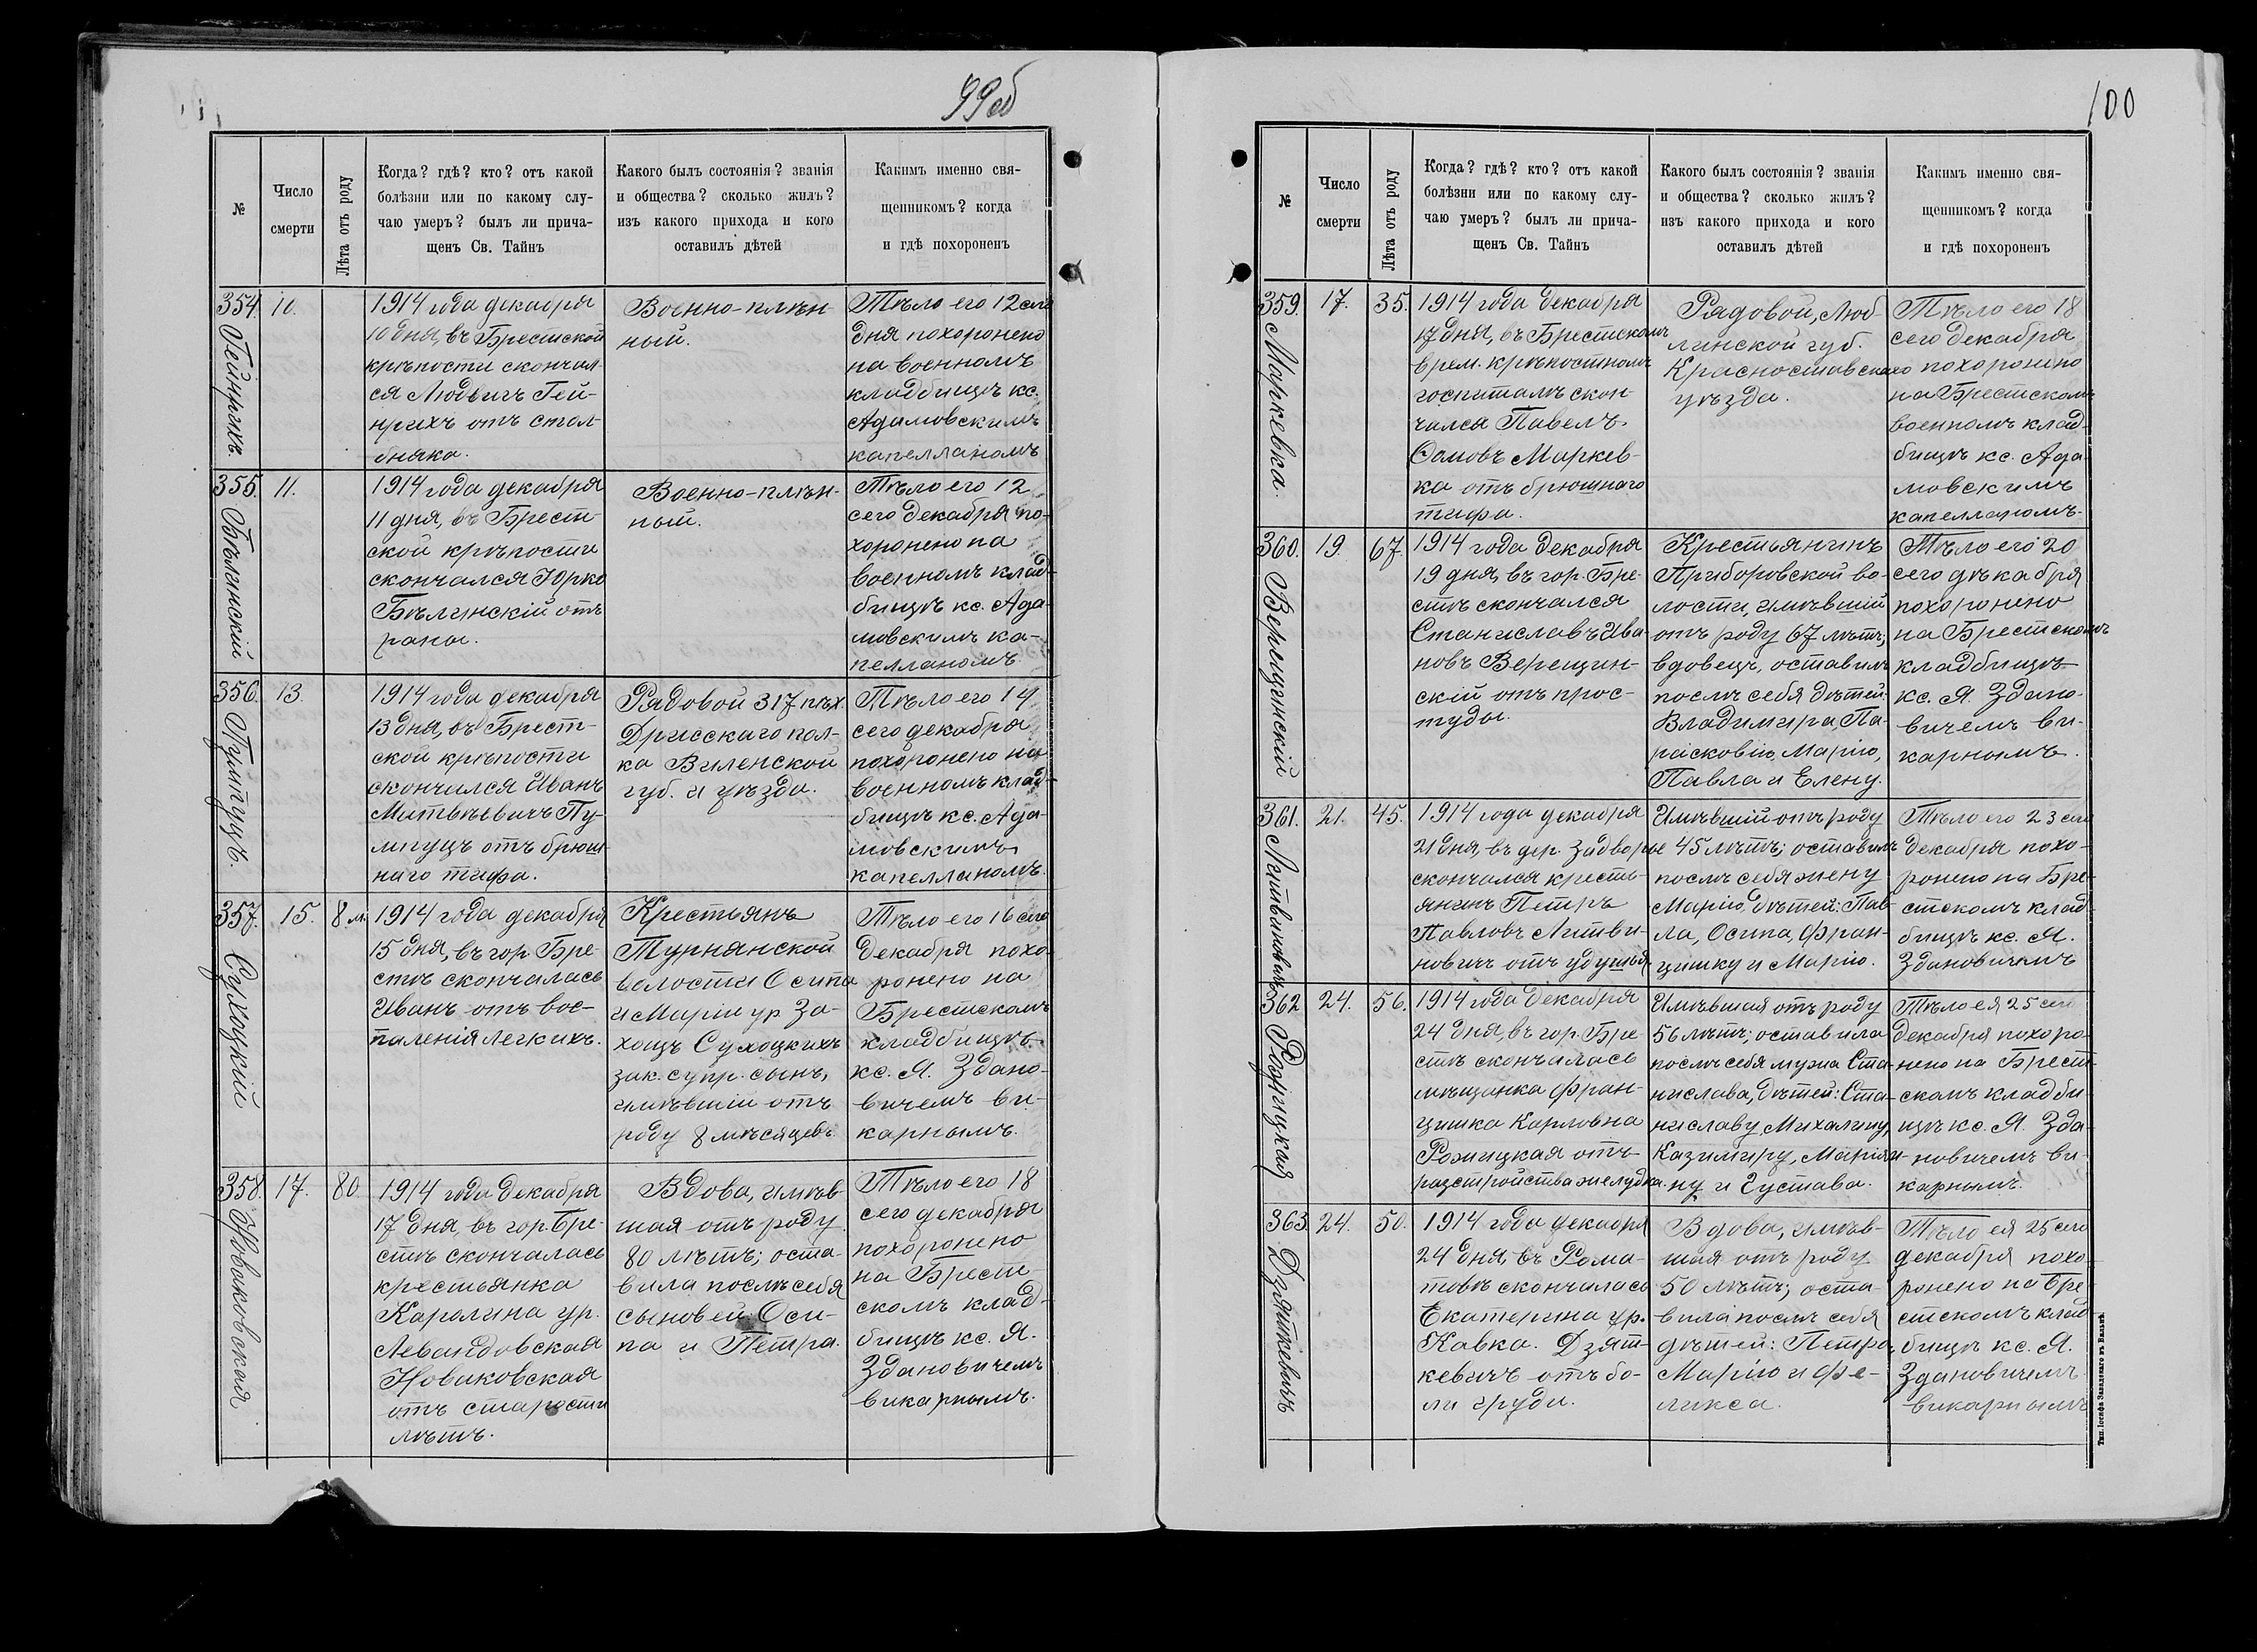 99об
№
Число
смерти
Лѣта отъ роду
Когда? гдѣ? кто? отъ какой
болѣзни или по какому слу-
чаю умеръ? былъ ли прича-
щенъ Св. Тайнъ
Какого былъ состоянія? званія
и общества? сколько жилъ?
изъ какого прихода и кого
оставилъ дѣтей
Какимъ именно свя-
щенникомъ? когда
и гдѣ похороненъ
354.
Гейнрихъ
10.
1914 года декабря
10 дня, въ Брестской
крѣпости скончал-
ся Людвигъ Гей-
нрихъ отъ стол-
бняка.
Военно-плѣн-
ный.
Тѣло его 12 сего
дня похоронено
на военномъ
кладбищѣ кс.
Адамовскимъ
капелланомъ
355.
Бѣлинскій
11.
1914 года декабря
11 дня, въ Брест-
ской крѣпости
скончался Юрко
Бѣлинскій отъ
раны.
Военно-плѣн-
ный.
Тѣло его 12
сего декабря по-
хоронено на
военномъ клад-
бищѣ кс. Ада-
мовскимъ ка-
пелланомъ
356.
13.
1914 года декабря
13 дня, въ Брест-
ской крѣпости
скончался Иванъ
Матвѣевичъ Пу-
мпуцъ отъ брюш-
наго тифа.
Рядовой 317 пѣх.
Дрисскаго пол-
ка Виленской
губ. и уѣзда.
Тѣло его 14
сего декабря
похоронено на
военномъ клад-
бищѣ кс. Ада-
мовскимъ
капелланомъ.
357.
Сухоцкій
15.
8 м.
1914 года декабря
15 дня, въ гор. Бре-
стѣ скончалась
Иванъ отъ вос-
паленія легкихъ.
Крестьянъ
Турнянской
волости Осипа
и Маріи ур. За-
хощъ Сухоцкихъ
зак. супр. сынъ,
имѣвшій отъ
роду 8 мѣсяцевъ.
Тѣло его 16 сего
декабря похо-
ронено на
Брестскомъ
кладбищѣ
кс. Я. Здано-
вичемъ ви-
карнымъ.
358.
Новаковская
17.
80
1914 года декабря
17 дня, въ гор. Бре-
стѣ скончалась
крестьянка
Каролина ур.
Левандовская
Новаковская
отъ старости
лѣтъ.
Вдова, имѣв-
шая отъ роду
80 лѣтъ; оста-
вила послѣ себя
сыновей: Оси-
па и Петра.
Тѣло его 18
сего декабря
похоронено
на Брест-
скомъ клад-
бищѣ кс. Я.
Здановичемъ
викарнымъ.
100
№
Число
смерти
Лѣта отъ роду
Когда? гдѣ? кто? отъ какой
болѣзни или по какому слу-
чаю умеръ? былъ ли прича-
щенъ Св. Тайнъ
Какого былъ состоянія? званія
и общества? сколько жилъ?
изъ какого прихода и кого
оставилъ дѣтей
Какимъ именно свя-
щенникомъ? когда
и гдѣ похороненъ
359.
Маркевка.
17.
35.
1914 года декабря
17 дня, въ Брестскомъ
врем. крѣпостномъ
госпиталѣ скон-
чался Павелъ
Ѳомовъ Маркев-
ка отъ брюшнаго
тифа.
Рядовой, Люб-
линской губ.
Красноставскаго
уѣзда.
Тѣло его 18
сего декабря
похоронено
на Брестскомъ
военномъ клад-
бищѣ кс. Ада-
мовскимъ
капелланомъ.
360.
Верещинскій
19.
67.
1914 года декабря
19 дня, въ гор. Бре-
стѣ скончался
Станиславъ Ива-
новъ Верещин-
скій отъ прос-
туды.
Крестьянинъ
Приборовской во-
лости, имѣвшій
отъ роду 67 лѣтъ,
вдовецъ, оставилъ
послѣ себя дѣтей:
Владимира, Па-
расковію, Марію,
Павла и Елену.
Тѣло его 20
сего дѣкабря
похоронено
на Брестскомъ
кладбищѣ
кс. Я. Здано-
вичемъ ви-
карнымъ.
361.
Литвиновичъ
21.
45.
1914 года декабря
21 дня, въ дер. Задворье
скончался кресть-
янинъ Петръ
Павловъ Литви-
новичъ отъ удушья.
Имѣвшій отъ роду
45 лѣтъ; оставилъ
послѣ себя жену
Марію, дѣтей: Пав-
ла, Осипа, Фран-
цишку и Марію.
Тѣло его 23 сего
декабря похо-
ронено на Бре-
стскомъ клад-
бищѣ кс. Я.
Здановичемъ
362
Рожицкая
24.
56.
1914 года декабря
24 дня, въ гор. Бре-
стѣ скончалась
мѣщанка Фран-
цишка Карловна
Рожицкая отъ
разстройства желудка.
Имѣвшая отъ роду
56 лѣтъ; оставила
послѣ себя мужа Ста-
нислава, дѣтей: Ста-
ниславу, Михалину,
Казимиру, Маріян-
ну и Густава.
Тѣло ея 25 сего
декабря похоро-
нено на Брест-
скомъ кладби-
щѣ кс. Я. Зда-
новичемъ ви-
карнымъ.
363.
Дзяткевичъ
24.
50.
1914 года декабря
24 дня, въ Рома-
товѣ скончалась
Екатерина ур.
Кавка. Дзят-
кевичъ отъ бо-
ли груди.
Вдова, имѣв-
шая отъ роду
50 лѣтъ; оста-
вила послѣ себя
дѣтей: Петра,
Марію и Фе-
ликса.
Тѣло ея 25 сего
декабря похо-
ронено на Бре-
стскомъ клад-
бищѣ кс. Я.
Здановичемъ
викарнымъ
Тип. Іосифа Завадзкаго въ Вильнѣ.